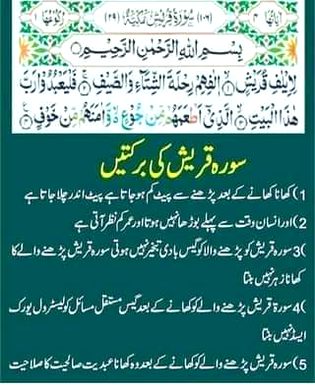 اٰیاتها ۴ (۱۰۶) سُوْرَةُ قُرَيْشٍ مَكِّيَّةٌ (۲۹) رُكُوْعُهَا ۱
بِسْمِ اللّٰهِ الرَّحْمٰنِ الرَّحِيْمِ
لِاِيْلٰفِ قُرَيْشٍ اٖلٰفِهِمْ رِحْلَةَ الشِّتَآءِ وَالصَّيْفِ فَلْيَعْبُدُوْا رَبَّ
هٰذَا الْبَيْتِ الَّذِيْٓ اَطْعَمَهُمْ مِّنْ جُوْعٍ وَّاٰمَنَهُمْ مِّنْ خَوْفٍ
سورہ قریش کی برکتیں
1) کھانا کھانے کے بعد پڑھنے سے پیٹ کم ہوجاتا ہے پیٹ اندر چلا جاتا ہے
2) اور انسان وقت سے پہلے بوڑھا نہیں ہوتا اور عمر کم نظر آتی ہے
3) سورہ قریش کو پڑھنے والا کو گیس بادی تبخیر نہیں ہوتی سورہ قریش پڑھنے والے کا
کھانا زہر نہیں بنتا
4) سورۃ قریش پڑھنے والے کو کھانے کے بعد گیس مستقل مسائل کولیسٹرول یورک
ایسڈ نہیں بنتا
5) سورہ قریش پڑھنے والے کو کھانے کے بعد وہ کھانا عبدیت صالحیت کا صلاحیت